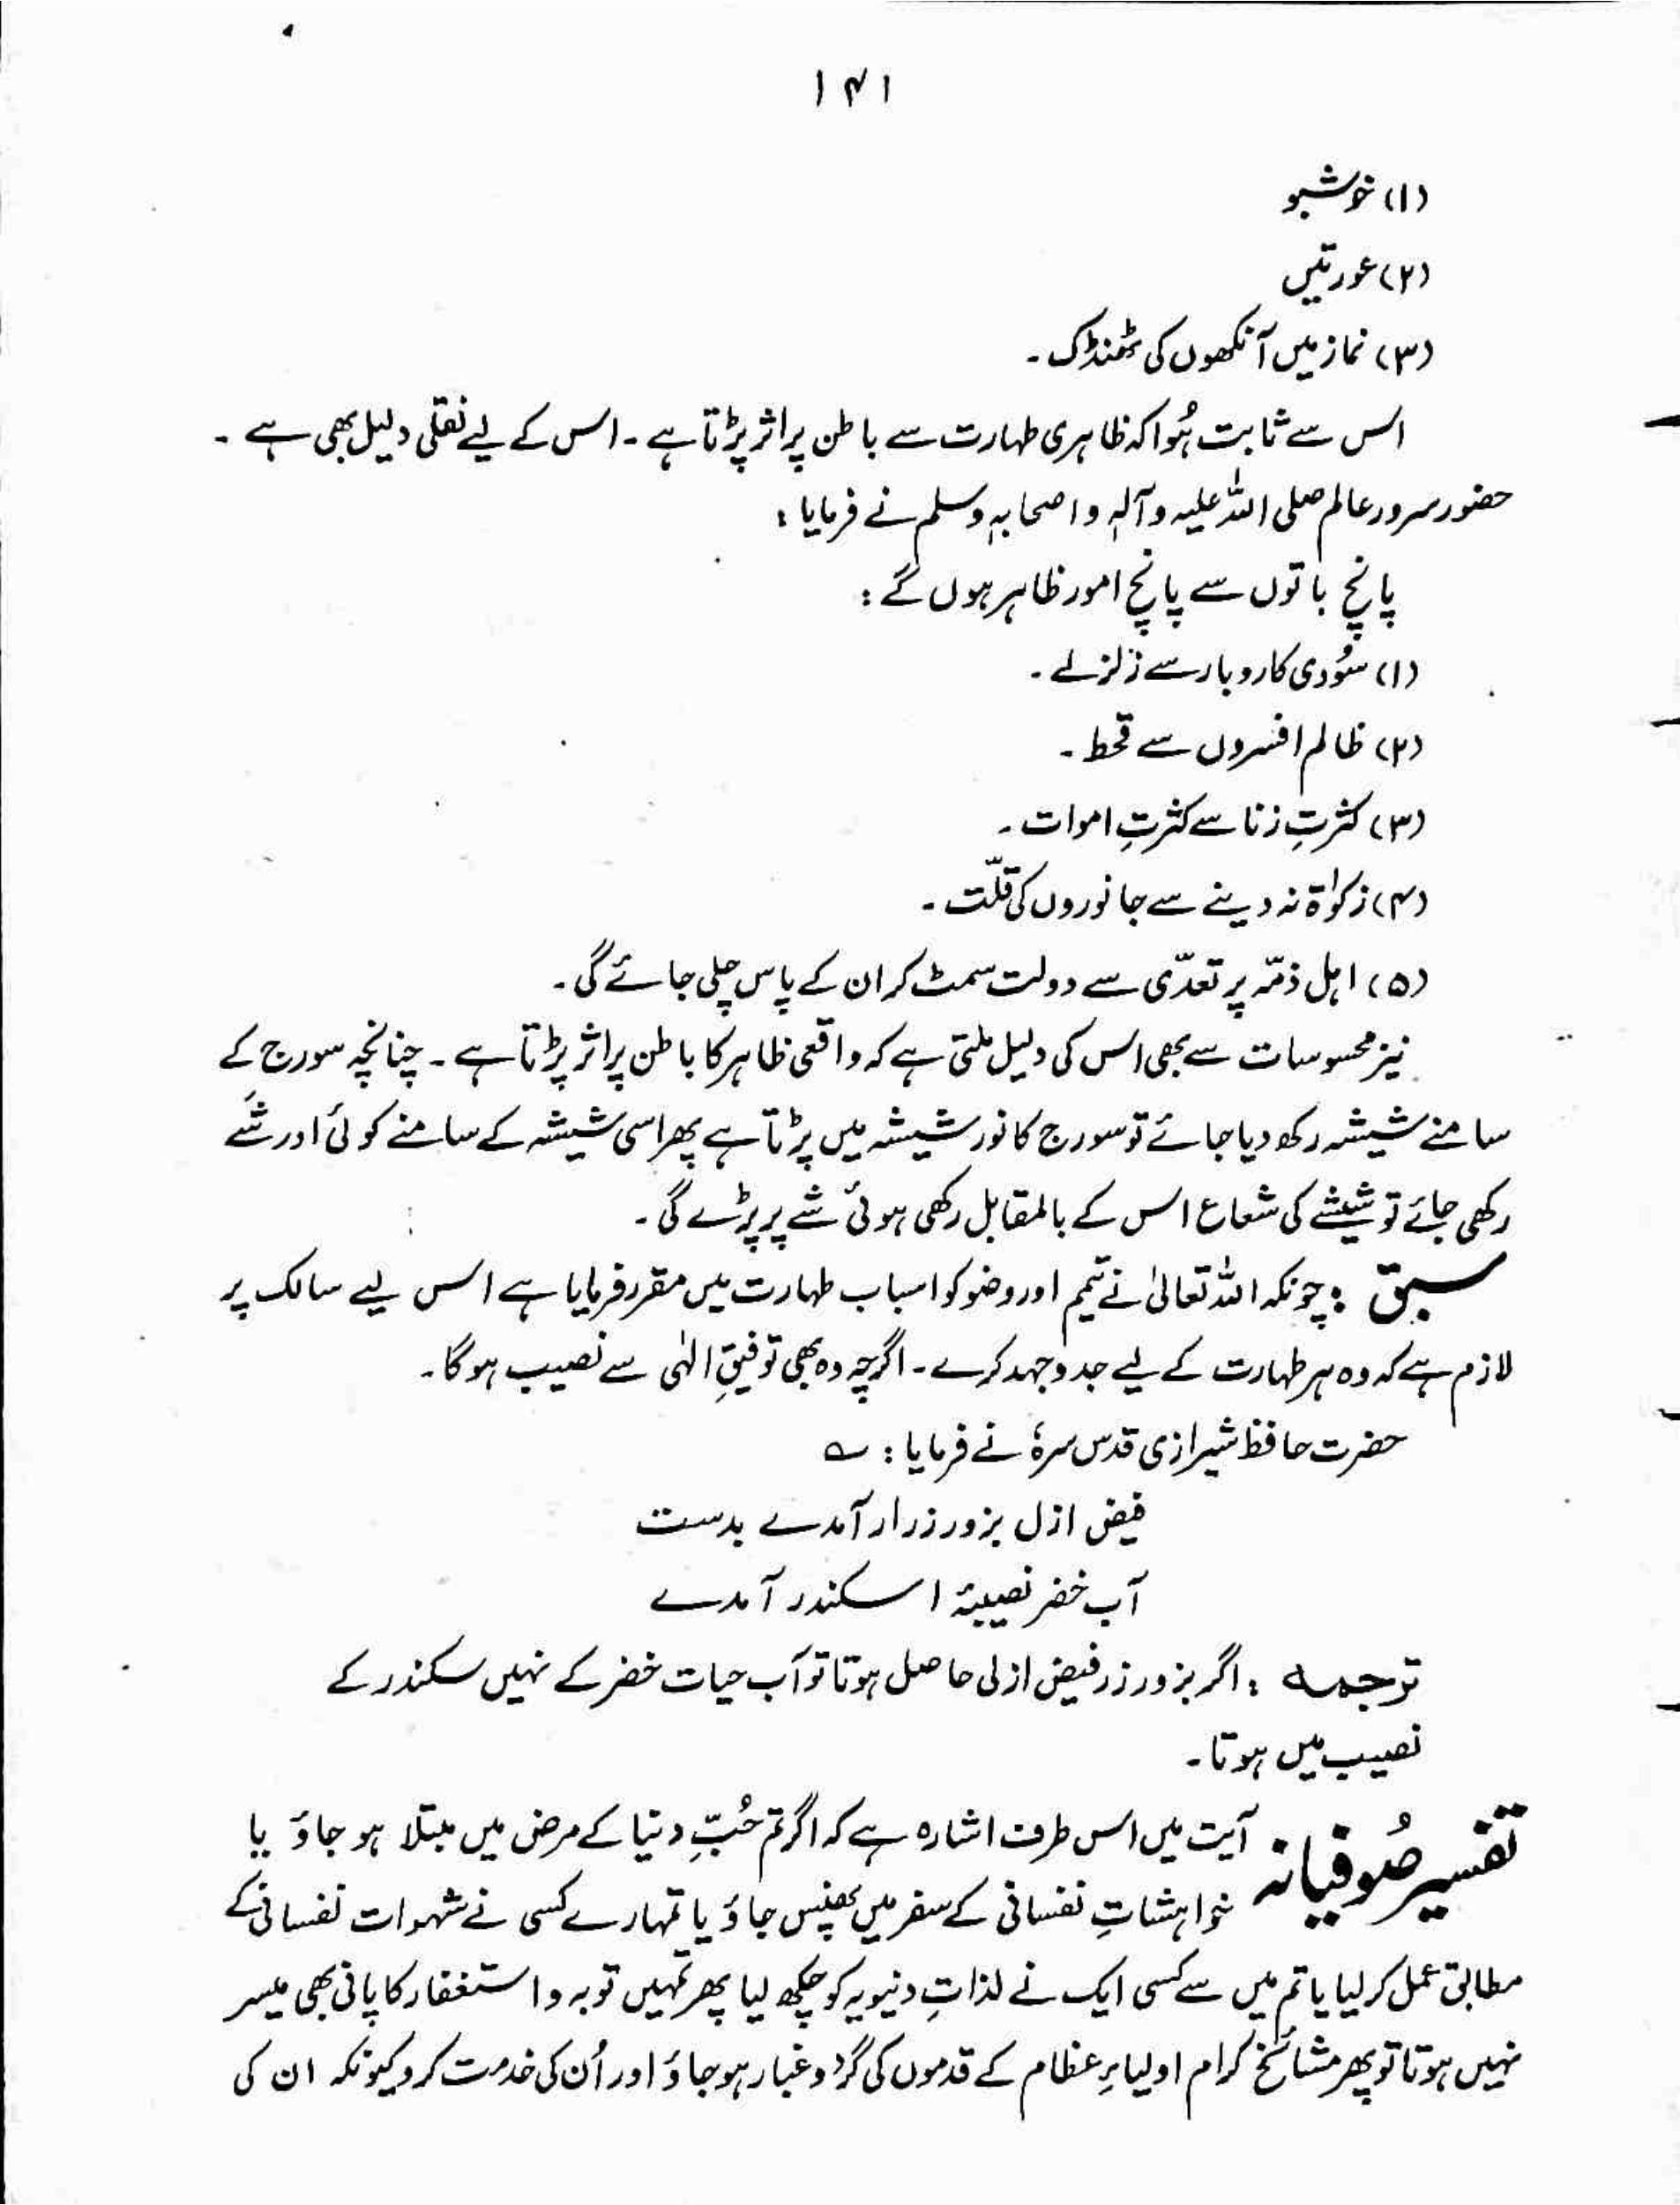 ۱۴۱
(۱) خوشبو
(۲) عورتیں
(۳) نماز میں آنکھوں کی ٹھنڈک ۔
اس سے ثابت ہُوا کہ ظاہری طہارت سے باطن پر اثر پڑتا ہے ۔ اس کے لیے نقلی دلیل بھی ہے ۔
حضور سرور عالم صلی اللہ علیہ وآلہٖ واصحابہٖ وسلم نے فرمایا :
پانچ باتوں سے پانچ امور ظاہر ہوں گے :
(۱) سُودی کاروبار سے زلزلے ۔
(۲) ظالم افسروں سے قحط ۔
(۳) کثرتِ زنا سے کثرتِ اموات ۔
(۴) زکوٰۃ نہ دینے سے جانوروں کی قلّت ۔
(۵) اہل ذمّہ پر تعدّی سے دولت سمٹ کر ان کے پاس چلی جائے گی ۔
نیز محسوسات سے بھی اس کی دلیل ملتی ہے کہ واقعی ظاہر کا باطن پر اثر پڑتا ہے ۔ چنانچہ سورج کے
سامنے شیشہ رکھ دیا جائے تو سورج کا نور شیشہ میں پڑتا ہے پھر اسی شیشہ کے سامنے کوئی اور شَے
رکھی جائے تو شیشے کی شعاع اس کے بالمقابل رکھی ہوئی شے پر پڑے گی ۔
سبق : چونکہ اللہ تعالیٰ نے تیمم اور وضو کو اسباب طہارت میں مقرر فرمایا ہے اس لیے سالک پر
لازم ہے کہ وہ ہر طہارت کے لیے جدوجہد کرے ۔ اگرچہ وہ بھی توفیقِ الٰہی سے نصیب ہوگا ۔
حضرت حافظ شیرازی قدس سرہٗ نے فرمایا : ؎
فیض ازل بزور زر ار آمدے بدست
آب خضر نصیبۂ اسکندر آمدے
ترجمہ : اگر بزور زر فیض ازلی حاصل ہوتا تو آب حیات خضر کے نہیں سکندر کے
نصیب میں ہوتا ۔
تفسیر صُوفیانہ آیت میں اس طرف اشارہ ہے کہ اگر تم حُبِّ دنیا کے مرض میں مبتلا ہو جاؤ یا
خواہشاتِ نفسانی کے سفر میں پھنس جاؤ یا تمہارے کسی نے شہوات نفسانی کے
مطابق عمل کر لیا یا تم میں سے کسی ایک نے لذاتِ دنیویہ کو چکھ لیا پھر تمہیں توبہ واستغفار کا پانی بھی میسر
نہیں ہوتا تو پھر مشائخ کرام اولیاءِ عظام کے قدموں کی گرد وغبار ہو جاؤ اور اُن کی خدمت کرو کیونکہ ان کی